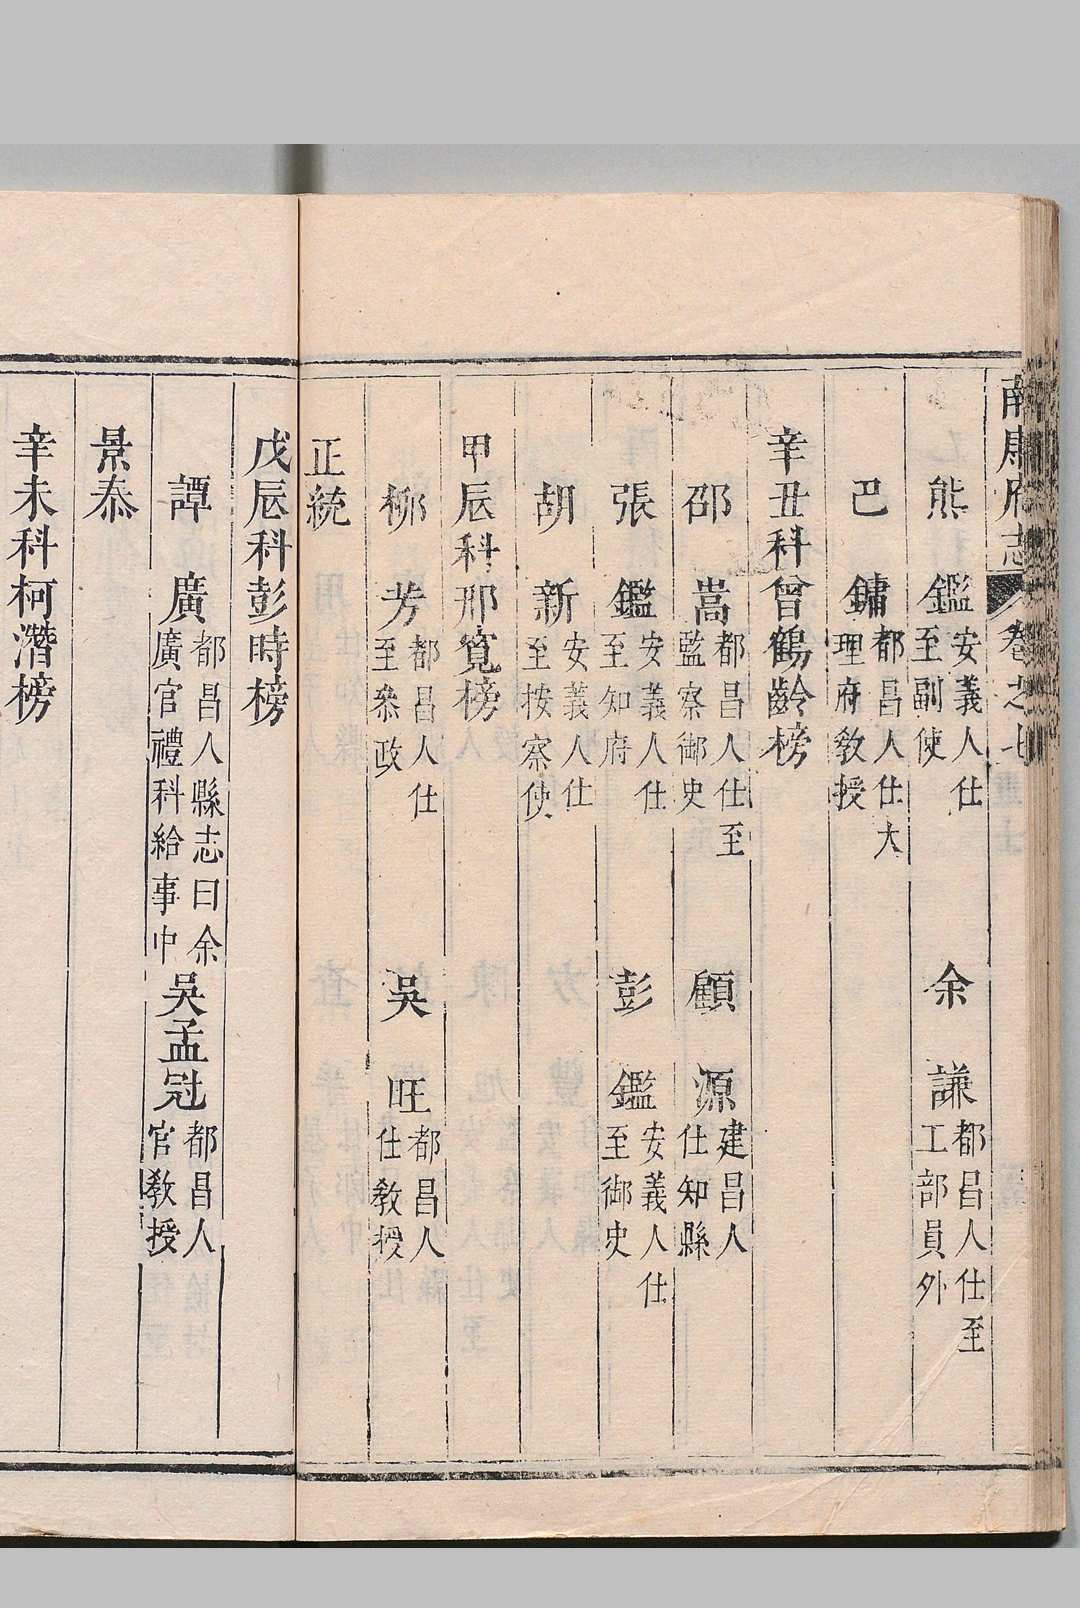 南康府志 卷之七
熊 鑑 安義人仕至副使 余 謙 都昌人仕至工部員外
巴 鏞 都昌人仕大理府敎授
辛丑科曾鶴齡榜
邵 嵩 都昌人仕至監察御史 顧 源 建昌人仕知縣
張 鑑 安義人仕至知府 彭 鑑 安義人仕至御史
胡 新 安義人仕至按察使
甲辰科邢寬榜
柳 芳 都昌人仕至叅政 吳 旺 都昌人仕敎授
正統
戊辰科彭時榜
譚 廣 都昌人縣志曰余廣官禮科給事中 吳孟冠 都昌人官敎授
景泰
辛未科柯潛榜